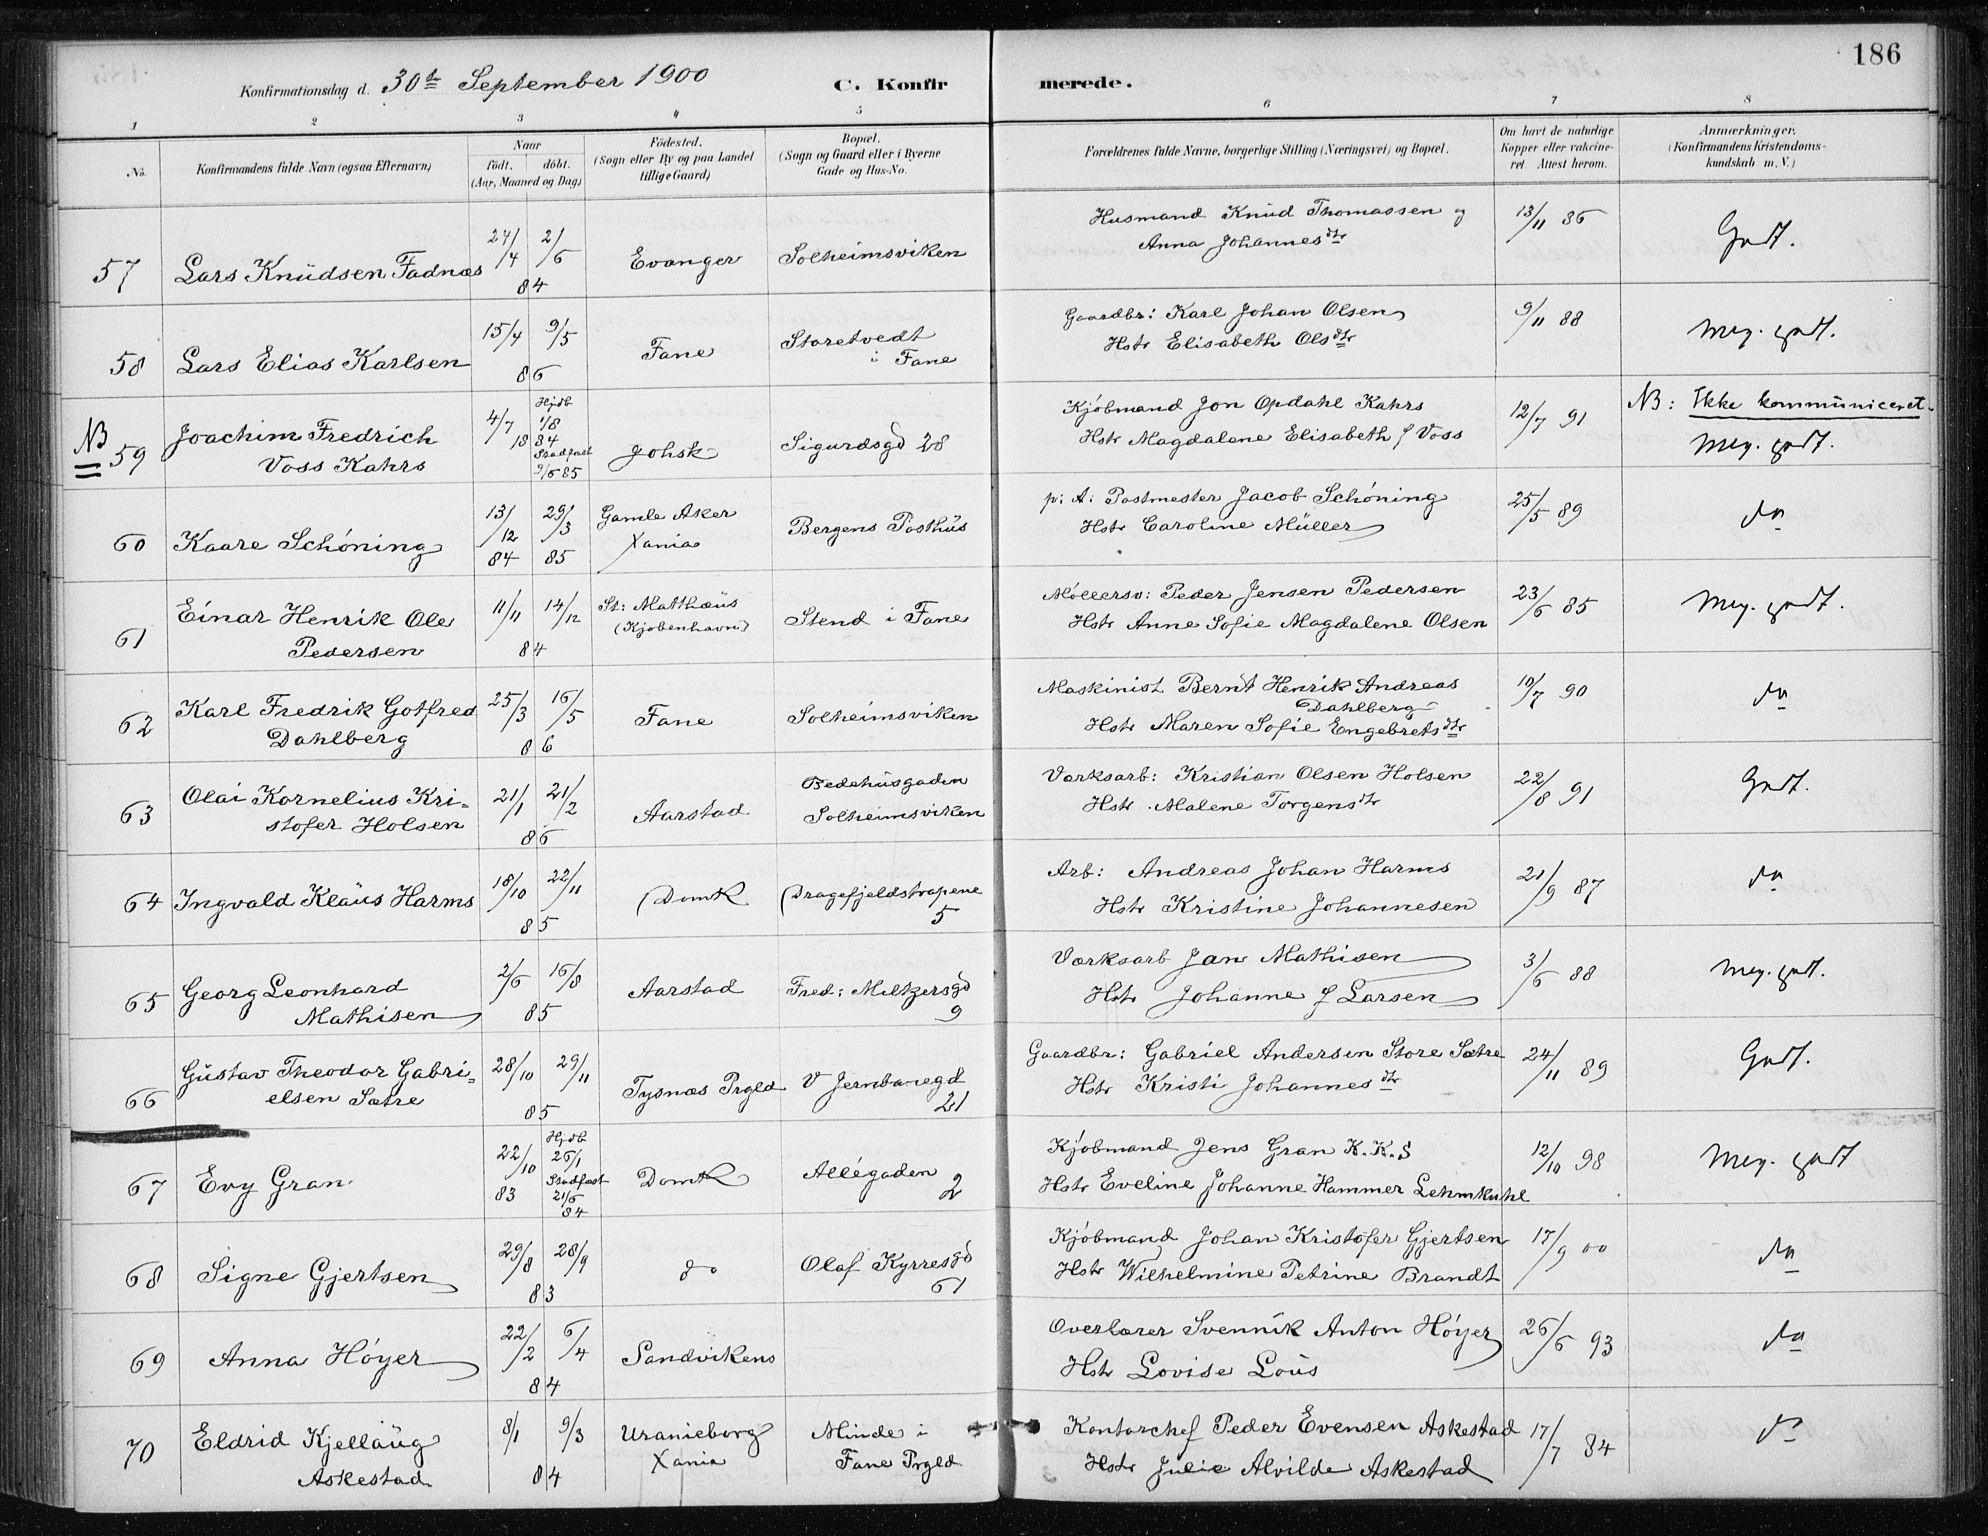 186
Konfirmationsdag d. 30te September 1900
C. Konfirmerede.
1 2 3 4 5 6 7 8
No. Konfirmandens fulde Navn (ogsaa Efternavn)
Naar født. døbt. (Aar, Maaned og Dag)
Fødested. (Sogn eller By og paa Landet tillige Gaard)
Bopæl. (Sogn og Gaard eller i Byerne Gade og Hus-No.
Forældrenes fulde Navne, borgerlige Stilling (Næringsvei) og Bopæl.
Om havt de naturlige Kopper eller vakcineret Attest herom.
Anmærkninger. (Konfirmandens Kristendomskundskab m. V.)
57 Lars Knudsen Fadnæs 24/4 2/6 84 Evanger Solheimsviken
Husmand Knud Thomassen og 13/11 86 Godt.
Anna Johannesdtr
58 Lars Elias Karlsen 15/4 9/5 86 Fane Storetvedt i Fane
Gaardbr: Karl Johan Olsen 9/11 88 Meg. godt.
Hstr Elisabeth Olsdtr
NB 59 Joachim Fredrich Voss Kahrs 4/7 1884 Hjdb 1/8 Stadfæst 9/6 85 Johsk Sigurdsgd 28
Kjøbmand Jon Opdahl Kahrs 12/7 91 NB: Ikke kommuniceret.
Hstr Magdalene Elisabeth f Voss Meg. godt.
60 Kaare Schøning 13/12 84 29/3 85 Gamle Aker Xania Bergens Posthus
p: A: Postmester Jacob Schøning 25/5 89 do
Hstr Caroline Müller
61 Einar Henrik Ole Pedersen 11/11 14/12 84 St: Matthæus (Kjøbenhavn) Stend i Fane
Møllersv: Peder Jensen Pedersen 23/6 85 Meg. godt.
Hstr Anne Sofie Magdalene Olsen
62 Karl Fredrik Gotfred Dahlberg 25/3 16/5 86 Fane Solheimsviken
Maskinist Bernt Henrik Andreas Dahlberg 10/7 90 do
Hstr Maren Sofie Engebretsdtr
63 Olai Kornelius Kristofer Holsen 21/1 21/2 86 Aarstad Bedehusgaden Solheimsviken
Værksarb: Kristian Olsen Holsen 22/8 91 Godt.
Hstr Malene Torgensdtr
64 Ingvald Klaus Harms 18/10 22/11 85 Domk Dragefjeldstrapene 5
Arb: Andreas Johan Harms 21/9 87 do
Hstr Kristine Johannesen
65 Georg Leonhard Mathisen 2/6 16/8 85 Aarstad Fred: Meltzersgd 9
Værksarb Jan Mathisen 3/6 88 Meg. godt.
Hstr Johanne f Larsen
66 Gustav Theodor Gabrielsen Sætre 28/10 29/11 85 Tysnæs Prgld V Jernbanegd 21
Gaardbr: Gabriel Andersen Store Sætre 24/11 89 Godt.
Hstr Kristi Johannesdtr
67 Evy Gran 22/10 83 Hjdb 26/1 Stadfæst 21/6 84 Domk Allégaden 2
Kjøbmand Jens Gran K.K.S 12/10 98 Meg. godt
Hstr Eveline Johanne Hammer Lehmkuhl
68 Signe Gjertsen 29/8 28/9 83 do Olaf Kyrresgd 61
Kjøbmand Johan Kristofer Gjertsen 17/9 00 do
Hstr Wilhelmine Petrine Brandt
69 Anna Høyer 22/2 6/4 84 Sandvikens
Overlærer Svennik Anton Høyer 26/6 93 do
Hstr Lovise Lous
70 Eldrid Kjellaug Askestad 8/1 9/3 84 Uranieborg Xania Minde i Fane Prgld
Kontorchef Peder Evensen Askestad 17/7 84 do
Hstr Julie Alvilde Askestad